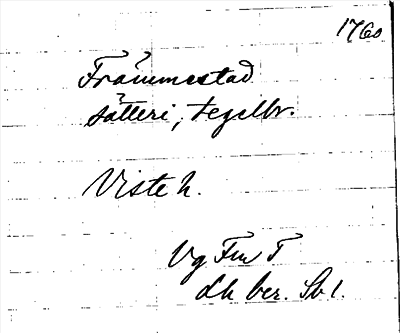 1760
Främmestad
sätteri, tegelbr.
Viste h.
Vg Fmv T
dh ber. Sb 1.